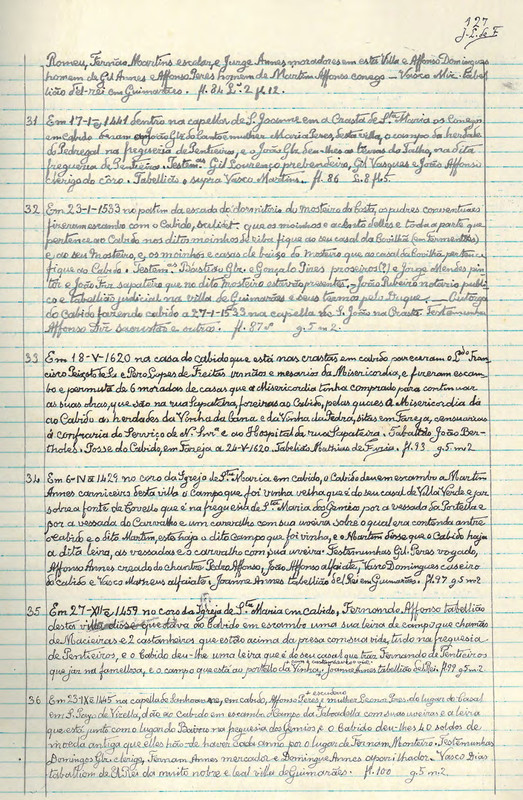 127
J. L. de F.
Romeu, Fernão Martins escolar, e Jurge Annes moradores em esta Villa e Affonso Domingues
homem de Gil Annes e Affonso Peres homem de Martim Affonso conego — Vasco Miz. Tabel
lião d'el-rei em Guimarães. fl. 84 L.º 2 fl 12.
31 Em 17-I-1441 dentro na capella de S. Joanne em a Crasta de S.ta Maria os Conegos
em Cabido deram a João Glz do Canto e mulher Maria Peres, desta villa, o campo da herdade
do Pedregal na freguesia de Pentieiros, e o João Glz deu-lhes as leiras do Talho, na dita
freguesia de Pentieiros. Testem.as Gil Lourenço prebendeiro, Gil Vasques e João Affonso
clerigo do côro. Tabellião o supra Vasco Martins. fl. 86
32 Em 23-1-1533 no postim da escada do dormitorio do mosteiro da Costa, os padres conventuaes
fizeram escambo com o Cabido, scilicet. que os moinhos e assento delles e toda a parte que
pertence ao Cabido nos ditos moinhos de riba fique ao seu casal da Covilhã (em Fermentões)
e ao seu Mosteiro, e os moinhos e casas de baixo do Moleiro que ao casal da Covilhã pertence
fique ao Cabido. Testem.as Bastião Glz. e Gonçalo Pires proseiros (?) e Jorge Mendes pin
tor e João Frz sapateiro que no dito mosteiro estavam presentes. João Ribeiro notario publi
co e tabellião judicial na villa de Guimarães e seus termos pelo Duque. — Outorga
do Cabido fazendo cabido a 27-1-1533 na capella de S. João na Crasta. Testemunhas
Affonso Frz e outro. fl. 87 g. 5 m 2.
33 Em 18-V-1620 na casa do cabido que está nas crastas em cabido pareceram o L.do Fran
cisco Peixoto de Sá e Pero Lopes de Freitas irmãos e mesarios da Misericordia, e fizeram escam
bo e permuta de 6 moradas de casas que a Misericordia tinha comprado para continuar
as suas obras, que são na rua Sapateira, foreiras ao Cabido, pelas quaes a Misericordia dá
ao Cabido as herdades da Vinha da Cana e da Vinha da Pedra, sitas em Fareja, censuarias
á confraria do Serviço de N.ª Snr.ª e ao Hospital da rua Sapateira. Tabellião João Ber-
tholes. Posse do Cabido, em Fareja a 24-V-1620. Tabelião Mathias de Faria. fl. 93. g. 5 m 2
34 Em 6-IV-1429 no coro da Igreja de S.ta Maria em cabido, o Cabido deu em escambo a Martim
Annes carniceiro desta villa o Campo que foi vinha velha que é do seu casal de Villa Verde e par
sobre a fonte de Corvello que é na freguesia de S.ta Maria do Gemeos, por a vessada da Portella e
por a vessada do Carvalho e um carvalho com sua uveira sobre o qual era contenda antre
o cabido e o dito Martim, este haja o dito campo que foi vinha, e o Martim disse que o Cabido haja
a dita leira, as vessadas e o carvalho com sua uveira. Testemunhas Gil Peres vogado,
Affonso Annes creado do chantre Pedro Affonso, João Affonso alfaiate, Vasco Domingues caseiro
do cabido e Vasco Matheus alfaiate. Joanne Annes tabellião del Rei em Guimarães. fl. 97 g. 5 m 2
35 Em 27-XII-1459 no coro da Igreja de S.ta Maria em Cabido, Fernando Affonso tabellião
desta villa disse que dava ao Cabido em escambo uma sua leira de campo que chamão
de Macieiras e 2 castanheiros que estão acima da presa com sua vide, tudo na freguesia
de Pentieiros, e o Cabido deu-lhe uma leira que é do seu casal que traz Fernando de Pentieiros
que jaz na famellosa, e o campo que está ao portello da Vinha, Joanne Annes tabellião del Rei. fl 99 g. 5 m 2.
36 Em 23-IX-1445 na capella de Sanhoane, em cabido, Affonso Peres + escudeiro e mulher Leonor Peres do lugar do Casal
em S. Payo de Vizella, dão ao Cabido em escambo o Campo da Taboadella com suas uveiras e a leira
que está junto com o lugar do Bairro na freguesia dos Gemeos, e o Cabido deu-lhes 40 soldos de
moeda antiga que elles hão de haver cada anno por o lugar de Fernam Monteiro. Testemunhas
Domingos Glz clerigo, Fernam Annes mercador e Domingue Annes aparilhador. Vasco Dias
tabaliom de El Rei da muito nobre e leal villa de Guimarães. fl. 100 g. 5 m 2.